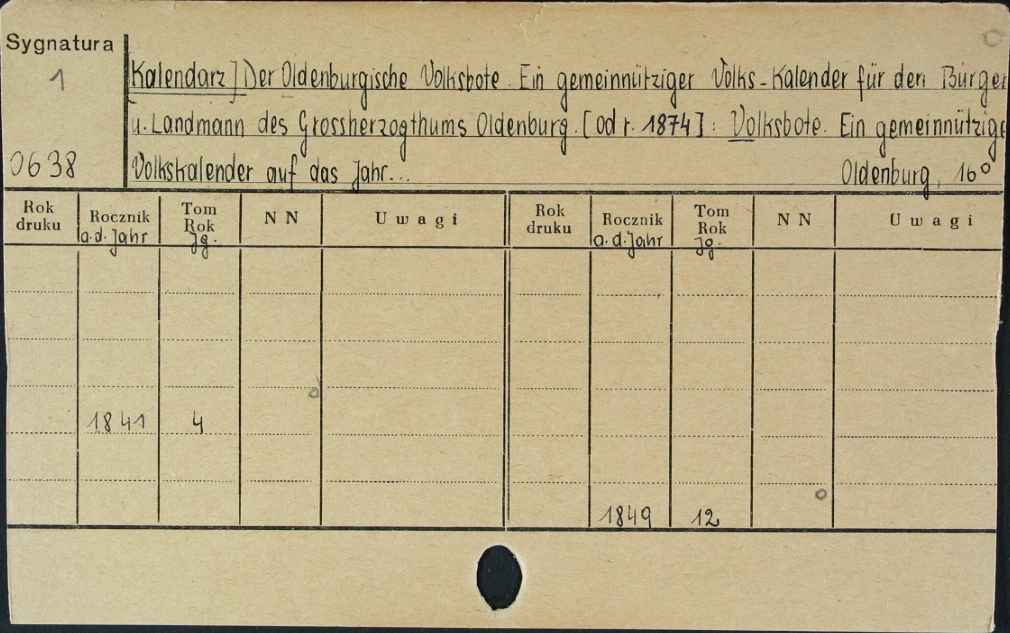 Sygnatura
1
0638
[Kalendarz] Der Oldenburgische Volksbote. Ein gemeinnütziger Volks-Kalender für den Bürger
u. Landmann des Grossherzogthums Oldenburg. [od r. 1874]: Volksbote. Ein gemeinnützige
Volkskalender auf das Jahr... Oldenburg, 16°
Rok druku Rocznik Tom Rok NN Uwagi Rok druku Rocznik Tom Rok NN Uwagi
a.d. Jahr Jg. a.d. Jahr Jg.
1841 4
1849 12